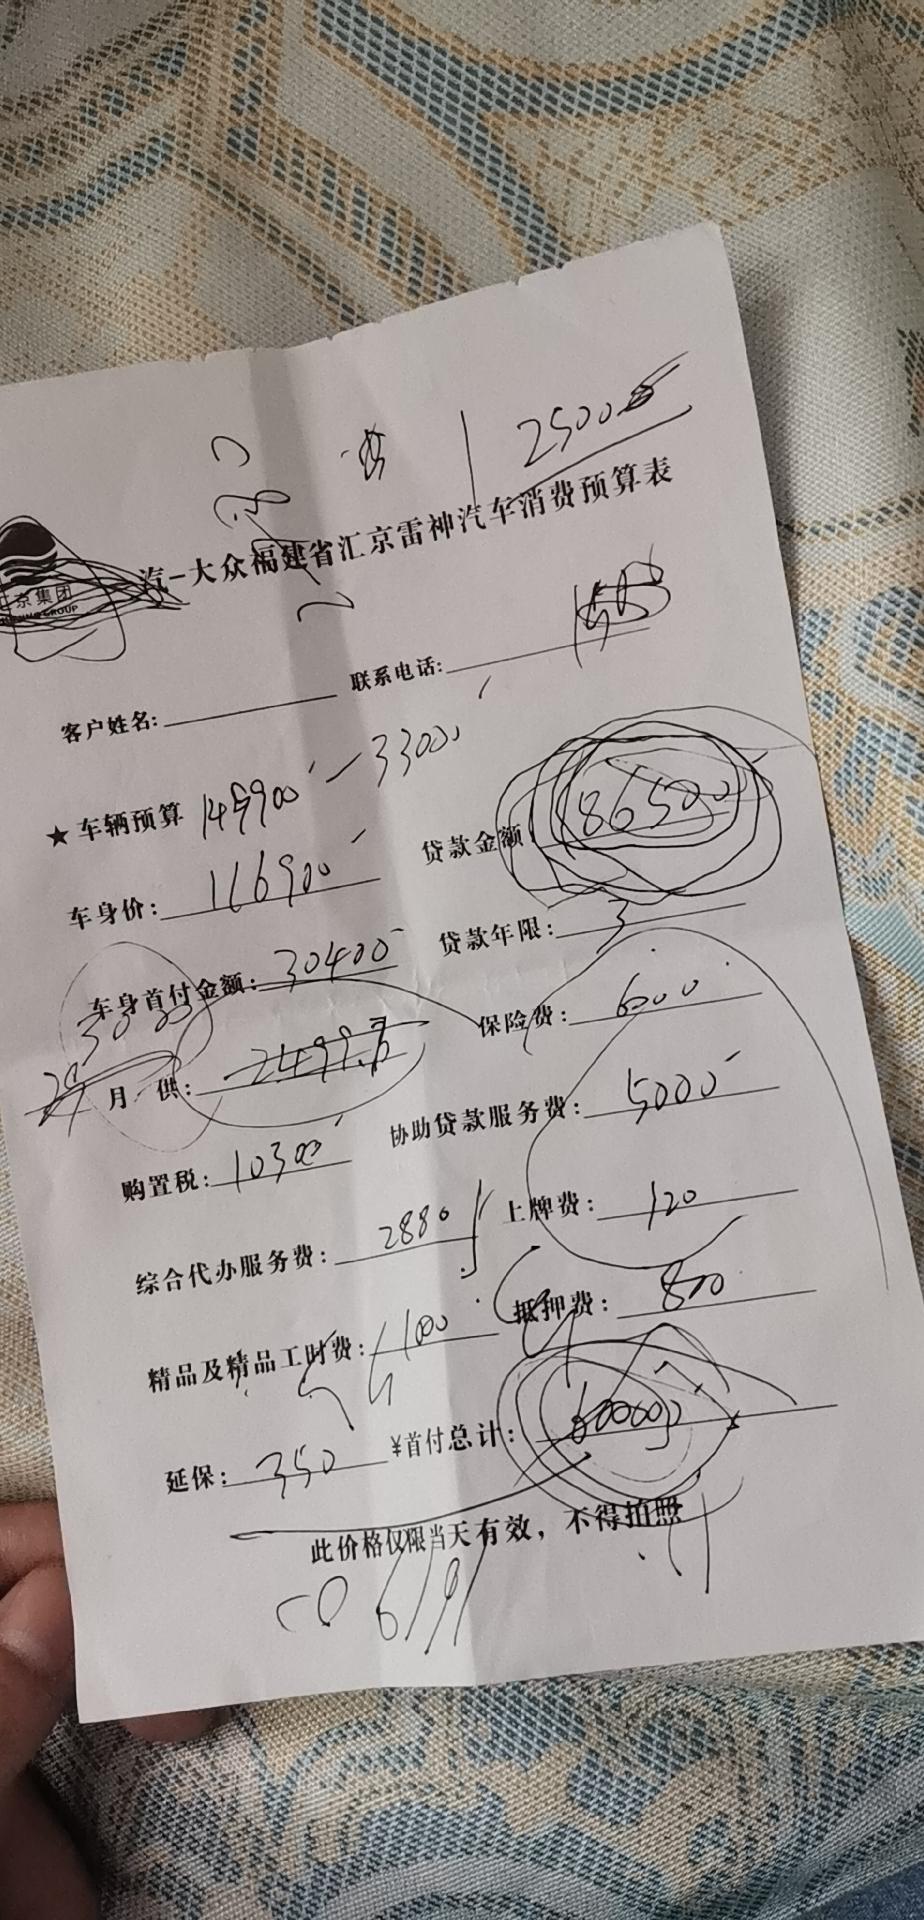 25008
汽-大众福建省汇京雷神汽车消费预算表
京集团
GROUP
客户姓名: 联系电话:
★车辆预算 149900 - 33000
车身价: 116900 贷款金额: 86500
车身首付金额: 30400 贷款年限: 3
月 供: 保险费: 6000
购置税: 10300 协助贷款服务费: 5000
综合代办服务费: 2880 上牌费: 120
精品及精品工时费: 抵押费: 800
延保: 350 ¥首付总计: 60000
此价格仅限当天有效，不得拍照